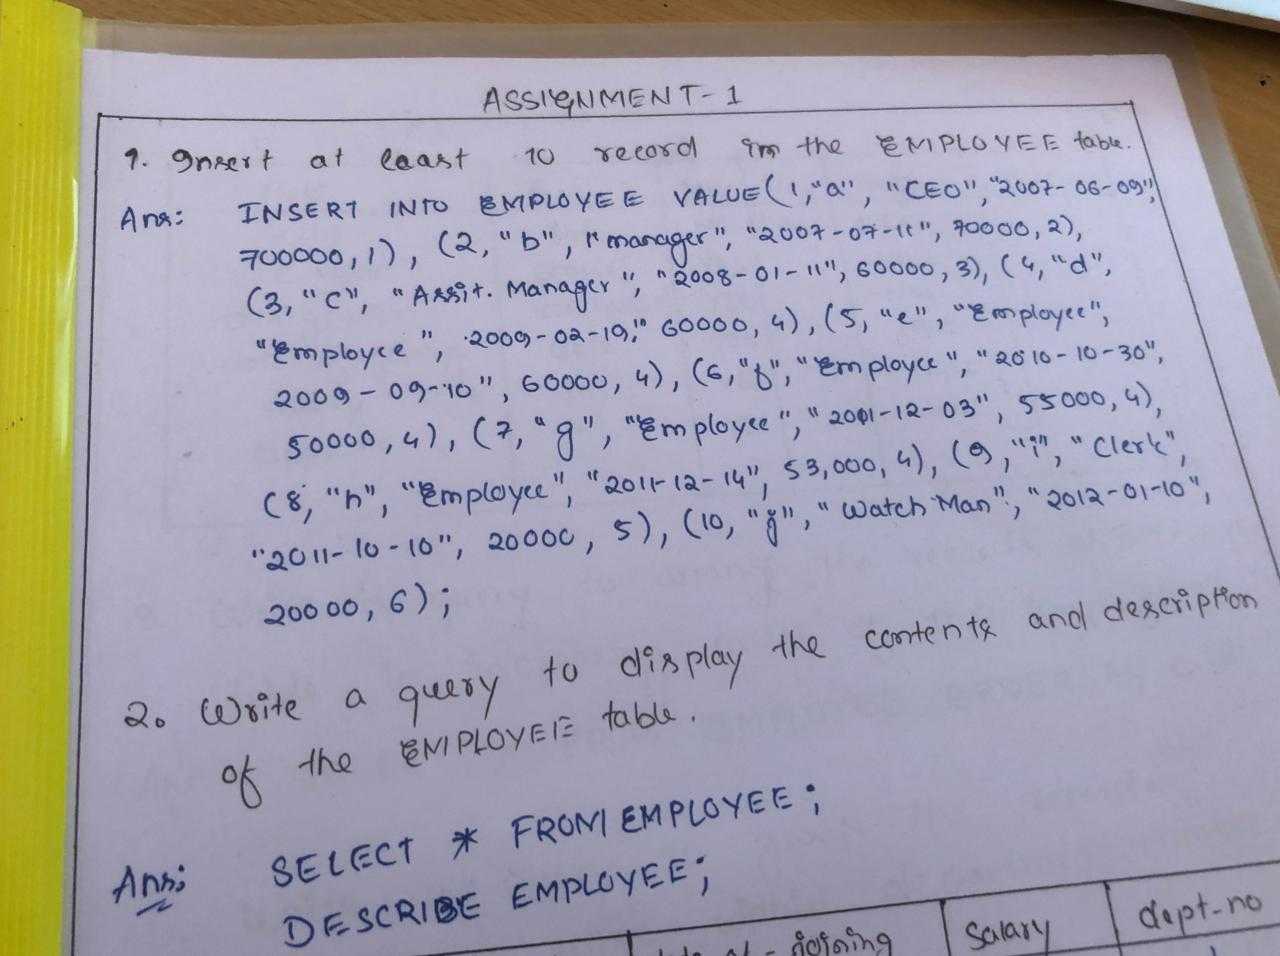 ASSIGNMENT-1
1. Insert at least 10 record in the EMPLOYEE table.
Ans: INSERT INTO EMPLOYEE VALUE(1,"a", "CEO","2007-06-09",
700000,1), (2, "b", "manager", "2007-07-11", 70000, 2),
(3, "c", "Assit. Manager", "2008-01-11", 60000, 3), (4, "d",
"Employee", 2009-02-19," 60000, 4), (5, "e", "Employee",
2009-09-10", 60000, 4), (6, "f", "Employee", "2010-10-30",
50000, 4), (7, "g", "Employee", "2001-12-03", 55000, 4),
(8, "h", "Employee", "2011-12-14", 53,000, 4), (9, "i", "Clerk",
"2011-10-10", 20000, 5), (10, "j", "Watch Man", "2012-01-10",
20000, 6);
2. Write a query to display the contents and description
of the EMPLOYEE table.
Ans: SELECT * FROM EMPLOYEE;
DESCRIBE EMPLOYEE;
joining Salary dept-no